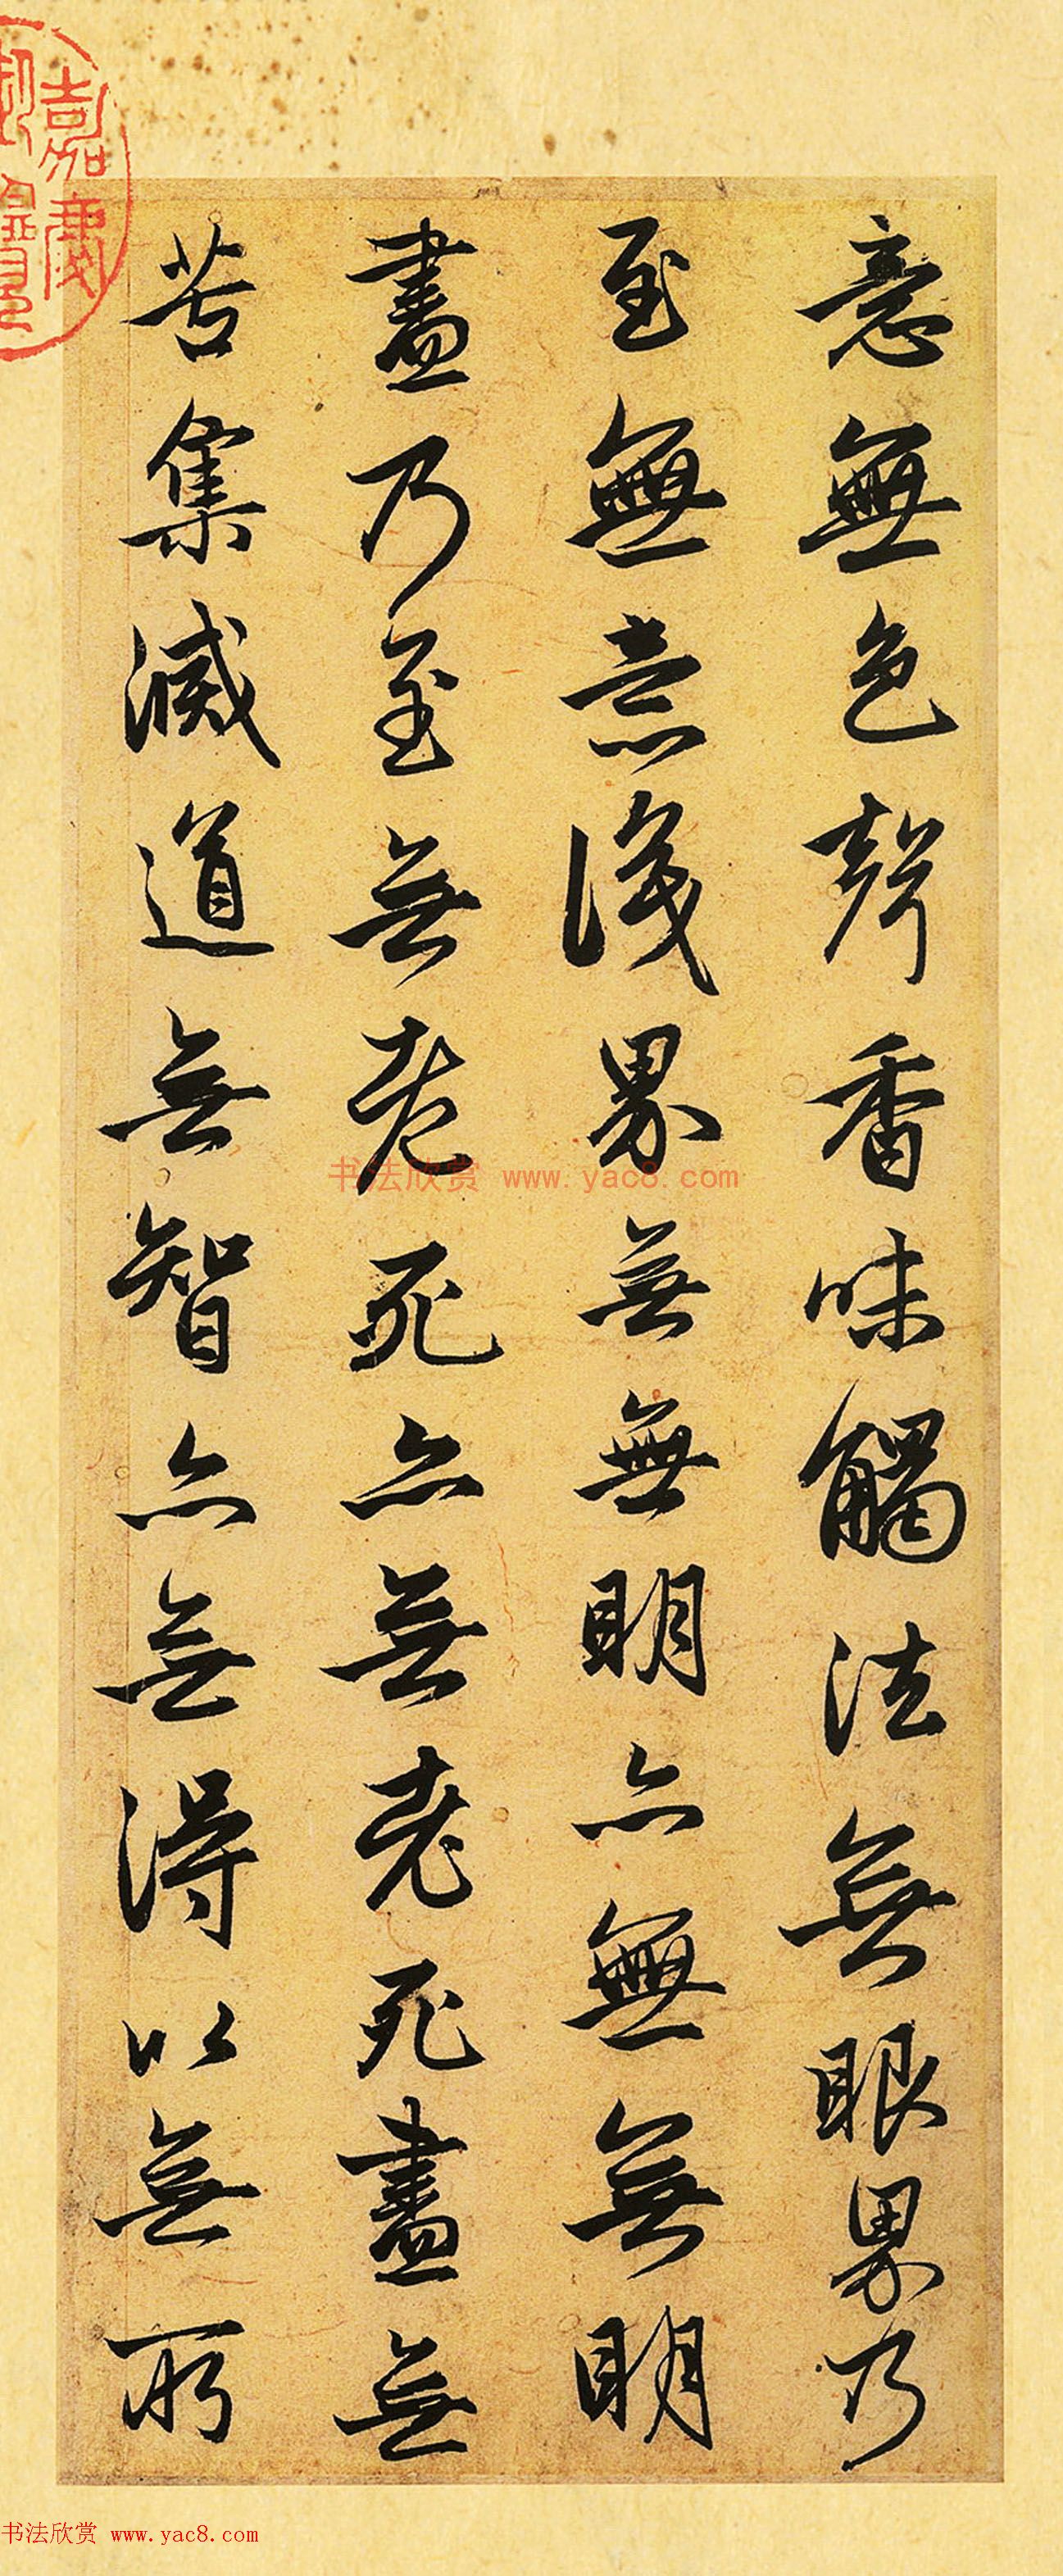 意無色聲香味觸法無眼界乃
至無意識界無無明亦無無明
盡乃至無老死亦無老死盡無
苦集滅道無智亦無得以無所
嘉慶
御覽
书法欣赏 www.yac8.com
书法欣赏 www.yac8.com